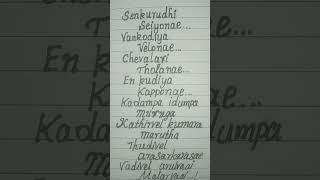 Senkurudhi
Seiyonae...
Vaskodiya
Velonae...
Chevalari
Tholanae...
En kudiya
Kapponae...
Kadampa idumpa
muruga
Kathirvel kumara
marutha
Thudivel
arasarkarasae
Vadivel arulvaai
Malarvaai..!